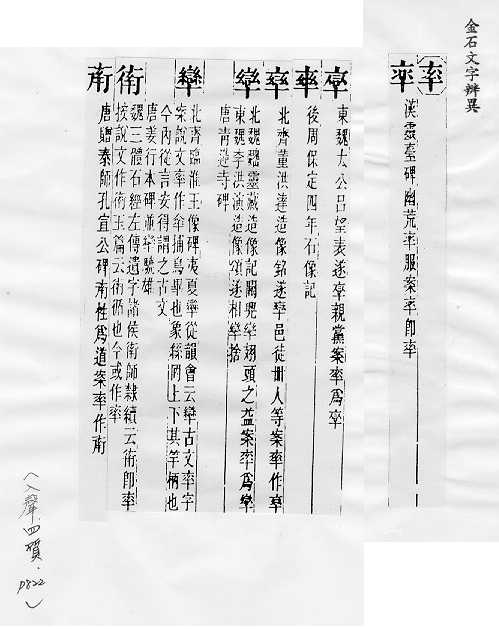 金石文字辨異
率
漢靈臺碑幽荒率服案率即率
東魏太公呂望表遂率親黨案率為
後周保定四年石像記
北齊董洪達造像銘遂率邑徒卌人等案率作
北魏魏靈藏造像記闕兜率翅頭之益案率為
東魏李洪演造像頌遂相率捨
唐青造寺碑
北齊臨淮王像碑夷夏䜌從韻會云䜌古文率字
案說文率作率捕鳥畢也象絲罔上下其竿柄也
今內從言安得謂之古文
唐姜行本碑並率驍雄
䘗
魏三體石經左傳遺字諸侯䘗師隸續云䘗即率
按說文作䘗玉篇云䘗循也今或作率
唐贈泰師孔宣公碑性為道案率作
(入聲四質.p822)